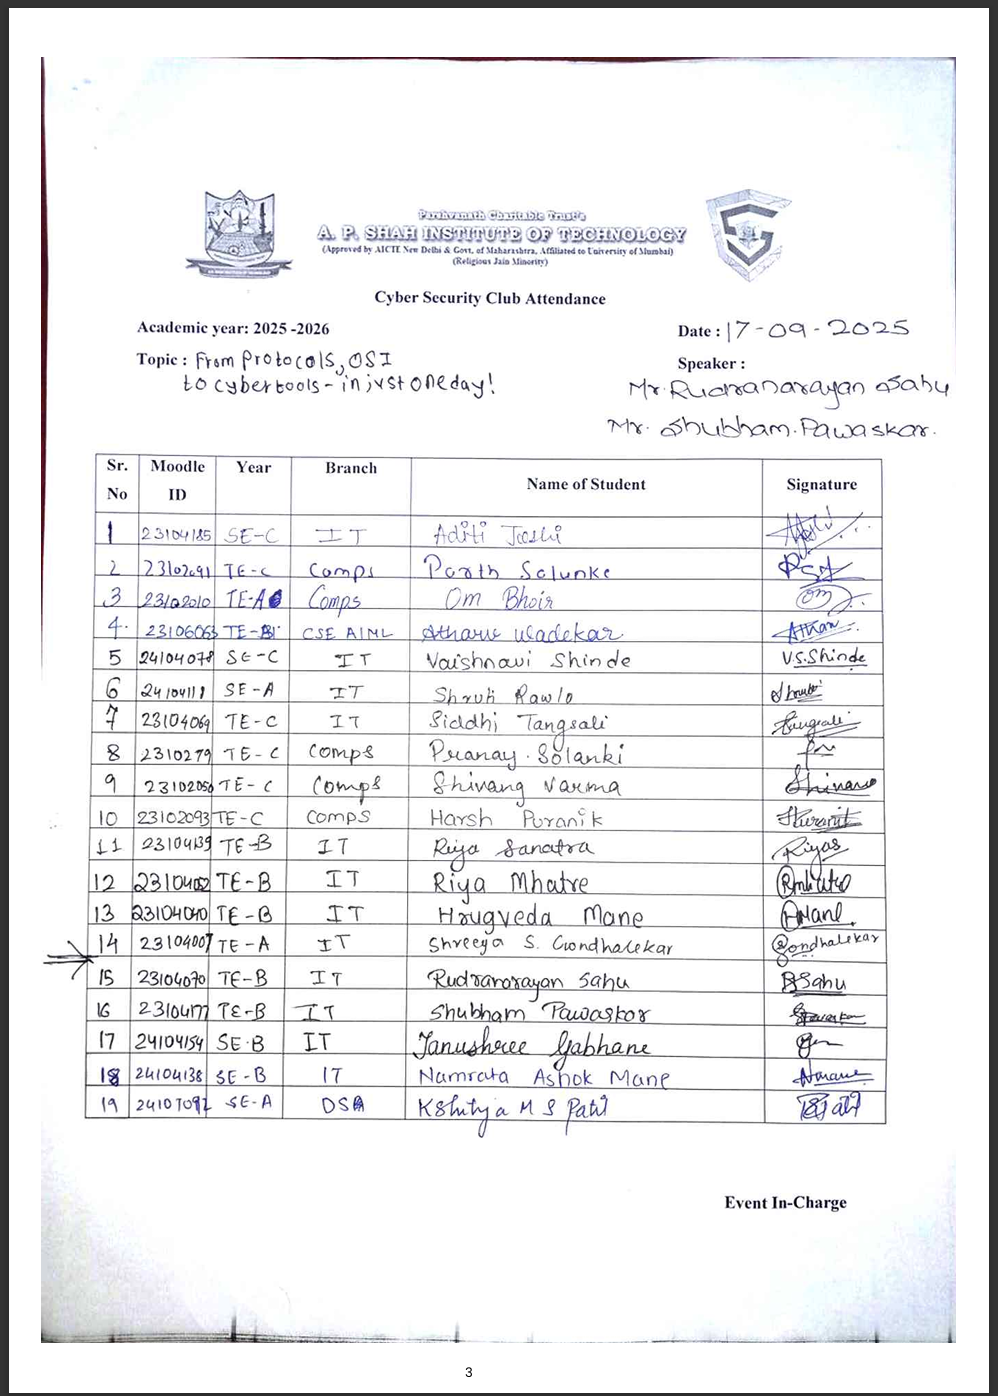 Parshvanath Charitable Trust's
A. P. SHAH INSTITUTE OF TECHNOLOGY
(Approved by AICTE New Delhi & Govt. of Maharashtra, Affiliated to University of Mumbai)
(Religious Jain Minority)
Cyber Security Club Attendance
Academic year: 2025 -2026 Date : 17-09-2025
Topic : From Protocols, OSI Speaker :
to cybertools - in just one day! Mr. Rudranarayan Sahu
Mr. Shubham. Pawaskar.
Sr. No Moodle ID Year Branch Name of Student Signature
1 23104185 SE-C IT Aditi Joshi
2 23102091 TE-C Comps Parth Solunke
3 23102010 TE-A Comps Om Bhoir Om
4. 23106063 TE-B CSE AIML Atharv Wadekar
5 24104078 SE-C IT Vaishnavi Shinde V.S.Shinde
6 24104111 SE-A IT Shruti
7 23104069 TE-C IT Siddhi Tangsali
8 2310279 TE-C Comps Pranay. Solanki
9 23102050 TE-C Comps Shivang Varma
10 23102093 TE-C Comps Harsh Puranik
11 23104139 TE-B IT Riya Sanatra Riyas
12 23104052 TE-B IT Riya Mhatre
13 23104040 TE-B IT Hrugveda Mane
14 23104007 TE-A IT Shreeya S. Gondhalekar Gondhalekar
15 23104070 TE-B IT Rudranarayan Sahu RSahu
16 23104177 TE-B IT Shubham Pawaskar
17 24104154 SE-B IT Tanushree Gabhane
18 24104138 SE-B IT Namrata Ashok Mane
19 SE-A Kshitija M S Patil
Event In-Charge
3